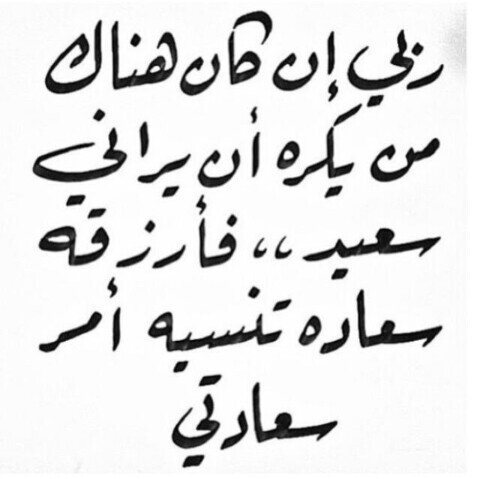 ربي إن كان هناك
من يكره أن يراني
سعيد ،، فأرزقه
سعاده تنسيه أمر
سعادتي